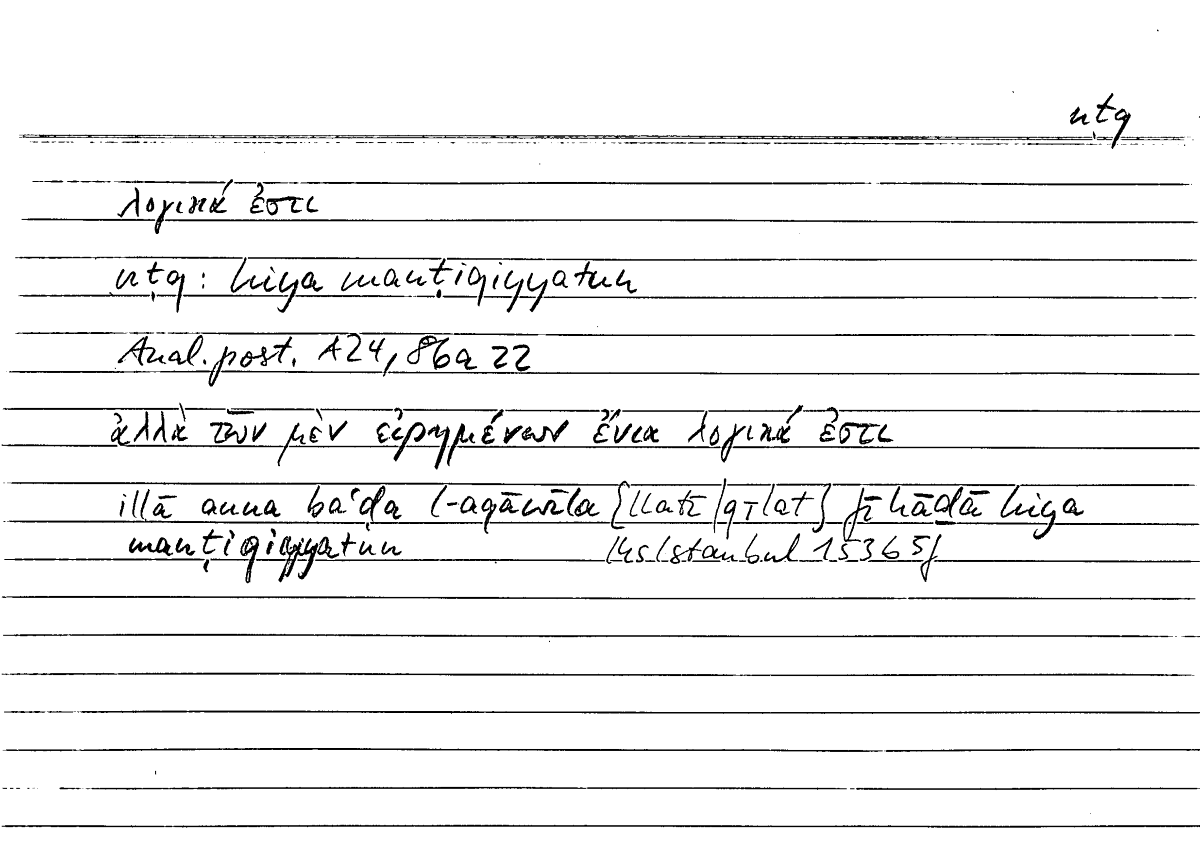 nṭq
λογικά ἐστι
nṭq: hiya manṭiqiyyatun
Anal. post. A24, 86a 22
ἀλλὰ τῶν μὲν εἰρημένων ἔνια λογικά ἐστι
illā anna baʿḍa l-aqāwīla {llatī /qīlat} fī hāḏā hiya
manṭiqiyyatun Hs Istanbul